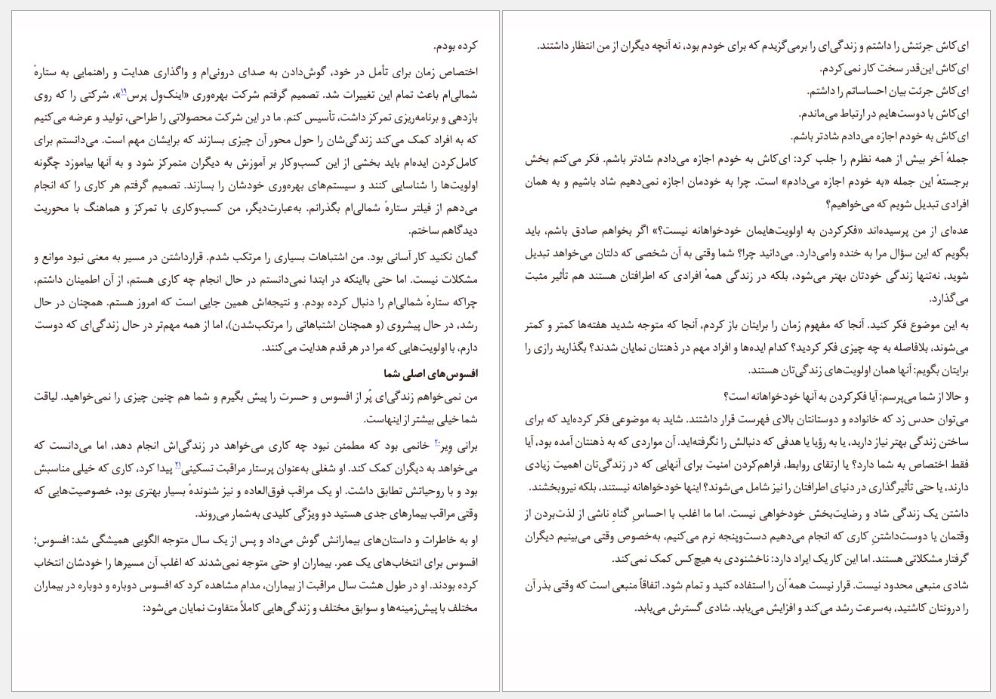 کرده بودم.
اختصاص زمان برای تأمل در خود، گوش‌دادن به صدای درونی‌ام و واگذاری هدایت و راهنمایی به ستارهٔ
شمالی‌ام باعث تمام این تغییرات شد. تصمیم گرفتم شرکت بهره‌وری «اینک‌ول پرس۱۹»، شرکتی را که روی
بازدهی و برنامه‌ریزی تمرکز داشت، تأسیس کنم. ما در این شرکت محصولاتی را طراحی، تولید و عرضه می‌کنیم
که به افراد کمک می‌کند زندگی‌شان را حول محور آن چیزی بسازند که برایشان مهم است. می‌دانستم برای
کامل‌کردن ایده‌ام باید بخشی از این کسب‌وکار بر آموزش به دیگران متمرکز شود و به آنها بیاموزد چگونه
اولویت‌ها را شناسایی کنند و سیستم‌های بهره‌وری خودشان را بسازند. تصمیم گرفتم هر کاری را که انجام
می‌دهم از فیلتر ستارهٔ شمالی‌ام بگذرانم. به‌عبارت‌دیگر، من کسب‌وکاری با تمرکز و هماهنگ با محوریت
دیدگاهم ساختم.
گمان نکنید کار آسانی بود. من اشتباهات بسیاری را مرتکب شدم. قرارداشتن در مسیر به معنی نبود موانع و
مشکلات نیست. اما حتی بااینکه در ابتدا نمی‌دانستم در حال انجام چه کاری هستم، از آن اطمینان داشتم،
چراکه ستارهٔ شمالی‌ام را دنبال کرده بودم. و نتیجه‌اش همین جایی است که امروز هستم. همچنان در حال
رشد، در حال پیشروی (و همچنان اشتباهاتی را مرتکب‌شدن)، اما از همه مهم‌تر در حال زندگی‌ای که دوست
دارم، با اولویت‌هایی که مرا در هر قدم هدایت می‌کنند.
افسوس‌های اصلی شما
من نمی‌خواهم زندگی‌ای پُر از افسوس و حسرت را پیش بگیرم و شما هم چنین چیزی را نمی‌خواهید. لیاقت
شما خیلی بیشتر از اینهاست.
برانی ویر۲۰ خانمی بود که مطمئن نبود چه کاری می‌خواهد در زندگی‌اش انجام دهد، اما می‌دانست که
می‌خواهد به دیگران کمک کند. او شغلی به‌عنوان پرستار مراقبت تسکینی۲۱ پیدا کرد، کاری که خیلی مناسبش
بود و با روحیاتش تطابق داشت. او یک مراقب فوق‌العاده و نیز شنوندهٔ بسیار بهتری بود، خصوصیت‌هایی که
وقتی مراقب بیمارهای جدی هستید دو ویژگی کلیدی به‌شمار می‌روند.
او به خاطرات و داستان‌های بیمارانش گوش می‌داد و پس از یک سال متوجه الگویی همیشگی شد: افسوس؛
افسوس برای انتخاب‌های یک عمر. بیماران او حتی متوجه نمی‌شدند که اغلب آن مسیرها را خودشان انتخاب
کرده بودند. او در طول هشت سال مراقبت از بیماران، مدام مشاهده کرد که افسوس دوباره و دوباره در بیماران
مختلف با پیش‌زمینه‌ها و سوابق مختلف و زندگی‌هایی کاملاً متفاوت نمایان می‌شود:
ای‌کاش جرئتش را داشتم و زندگی‌ای را برمی‌گزیدم که برای خودم بود، نه آنچه دیگران از من انتظار داشتند.
ای‌کاش این‌قدر سخت کار نمی‌کردم.
ای‌کاش جرئت بیان احساساتم را داشتم.
ای‌کاش با دوست‌هایم در ارتباط می‌ماندم.
ای‌کاش به خودم اجازه می‌دادم شادتر باشم.
جملهٔ آخر بیش از همه نظرم را جلب کرد: ای‌کاش به خودم اجازه می‌دادم شادتر باشم. فکر می‌کنم بخش
برجستهٔ این جمله «به خودم اجازه می‌دادم» است. چرا به خودمان اجازه نمی‌دهیم شاد باشیم و به همان
افرادی تبدیل شویم که می‌خواهیم؟
عده‌ای از من پرسیده‌اند «فکرکردن به اولویت‌هایمان خودخواهانه نیست؟» اگر بخواهم صادق باشم، باید
بگویم که این سؤال مرا به خنده وامی‌دارد. می‌دانید چرا؟ شما وقتی به آن شخصی که دلتان می‌خواهد تبدیل
شوید، نه‌تنها زندگی خودتان بهتر می‌شود، بلکه در زندگی همهٔ افرادی که اطرافتان هستند هم تأثیر مثبت
می‌گذارد.
به این موضوع فکر کنید. آنجا که مفهوم زمان را برایتان باز کردم، آنجا که متوجه شدید هفته‌ها کمتر و کمتر
می‌شوند، بلافاصله به چه چیزی فکر کردید؟ کدام ایده‌ها و افراد مهم در ذهنتان نمایان شدند؟ بگذارید رازی را
برایتان بگویم: آنها همان اولویت‌های زندگی‌تان هستند.
و حالا از شما می‌پرسم: آیا فکرکردن به آنها خودخواهانه است؟
می‌توان حدس زد که خانواده و دوستانتان بالای فهرست قرار داشتند. شاید به موضوعی فکر کرده‌اید که برای
ساختن زندگی بهتر نیاز دارید، یا به رؤیا یا هدفی که دنبالش را نگرفته‌اید. آن مواردی که به ذهنتان آمده بود، آیا
فقط اختصاص به شما دارد؟ یا ارتقای روابط، فراهم‌کردن امنیت برای آنهایی که در زندگی‌تان اهمیت زیادی
دارند، یا حتی تأثیرگذاری در دنیای اطرافتان را نیز شامل می‌شوند؟ اینها خودخواهانه نیستند، بلکه نیروبخشند.
داشتن یک زندگی شاد و رضایت‌بخش خودخواهی نیست. اما ما اغلب با احساسِ گناهِ ناشی از لذت‌بردن از
وقتمان یا دوست‌داشتنِ کاری که انجام می‌دهیم دست‌وپنجه نرم می‌کنیم، به‌خصوص وقتی می‌بینیم دیگران
گرفتار مشکلاتی هستند. اما این کار یک ایراد دارد: ناخشنودی به هیچ‌کس کمک نمی‌کند.
شادی منبعی محدود نیست. قرار نیست همهٔ آن را استفاده کنید و تمام شود. اتفاقاً منبعی است که وقتی بذر آن
را درونتان کاشتید، به‌سرعت رشد می‌کند و افزایش می‌یابد. شادی گسترش می‌یابد.